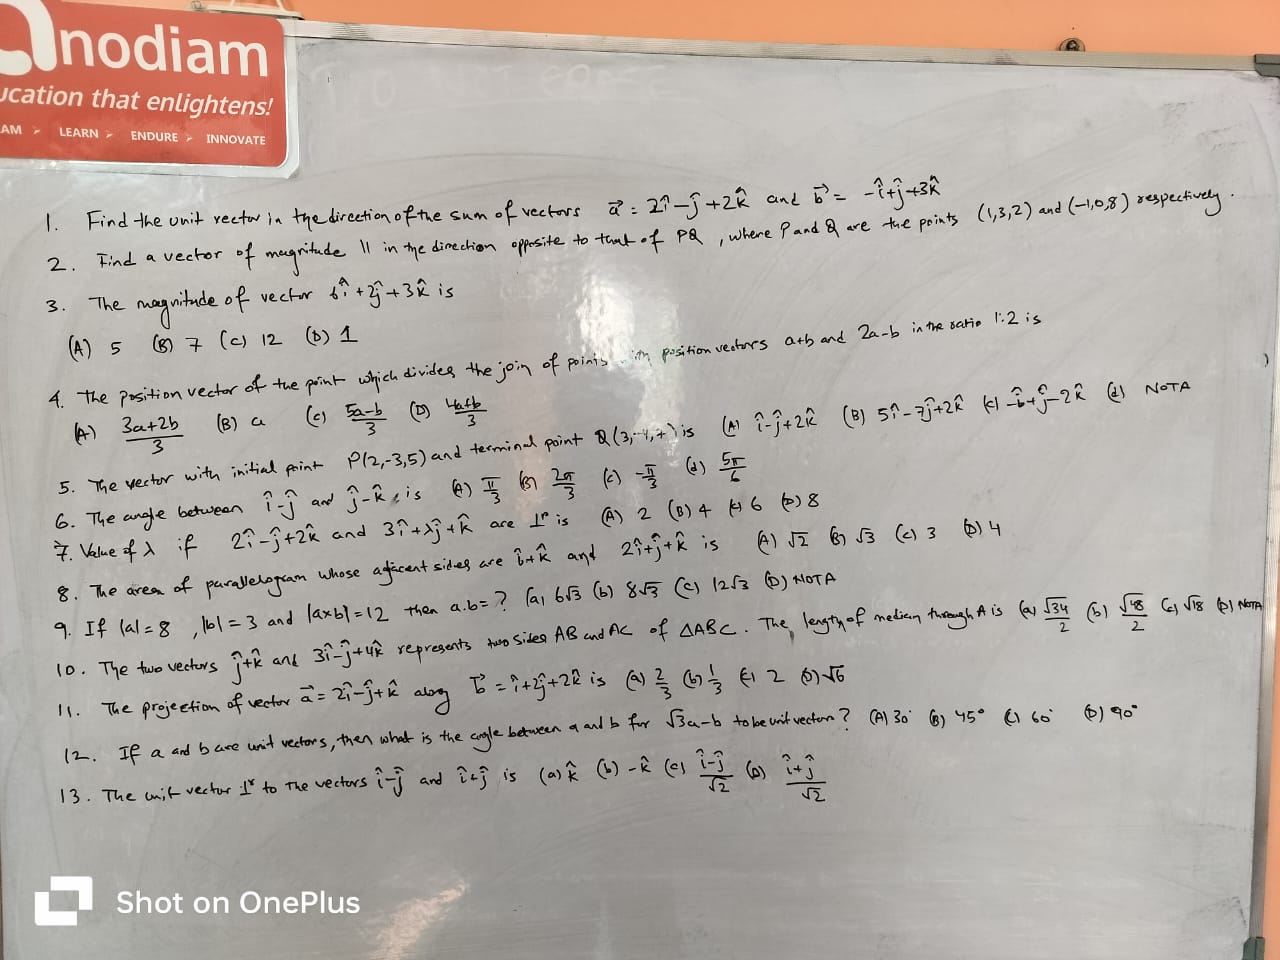 anodiam
ucation that enlightens!
AM > LEARN > ENDURE > INNOVATE
1. Find the unit vector in the direction of the sum of vectors a⃗ = 2î-ĵ+2k̂ and b⃗ = -î+ĵ+3k̂
2. Find a vector of magnitude 11 in the direction opposite to that of PQ, where P and Q are the points (1,3,2) and (-1,0,8) respectively.
3. The magnitude of vector 6î+2ĵ+3k̂ is
(A) 5 (B) 7 (C) 12 (D) 1
4. The position vector of the point which divides the join of points with position vectors a+b and 2a-b in the ratio 1:2 is
(A) 3a+2b/3 (B) a (C) 5a-b/3 (D) 4a+b/3
5. The vector with initial point P(2,-3,5) and terminal point Q(3,-4,7) is (A) î-ĵ+2k̂ (B) 5î-7ĵ+2k̂ (c) -î+ĵ-2k̂ (d) NOTA
6. The angle between î-ĵ and ĵ-k̂ is (A) π/3 (B) 2π/3 (c) -π/3 (d) 5π/6
7. Value of λ if 2î-ĵ+2k̂ and 3î+λĵ+k̂ are ⊥r is (A) 2 (B) 4 (c) 6 (D) 8
8. The area of parallelogram whose adjacent sides are î+k̂ and 2î+ĵ+k̂ is (A) √2 (B) √3 (c) 3 (D) 4
9. If |a|=8, |b|=3 and |axb|=12 then a.b=? (a) 6√3 (b) 8√3 (c) 12√3 (D) NOTA
10. The two vectors ĵ+k̂ and 3î-ĵ+4k̂ represents two sides AB and AC of ΔABC. The length of median through A is (a) √34/2 (b) √48/2 (c) √18 (D) NOTA
11. The projection of vector a⃗ = 2î-ĵ+k̂ along b⃗ = î+2ĵ+2k̂ is (a) 2/3 (b) 1/3 (c) 2 (D) √6
12. If a and b are unit vectors, then what is the angle between a and b for √3a-b to be unit vector? (A) 30° (B) 45° (c) 60° (D) 90°
13. The unit vector ⊥r to the vectors î-ĵ and î+ĵ is (a) k̂ (b) -k̂ (c) î-ĵ/√2 (D) î+ĵ/√2
Shot on OnePlus